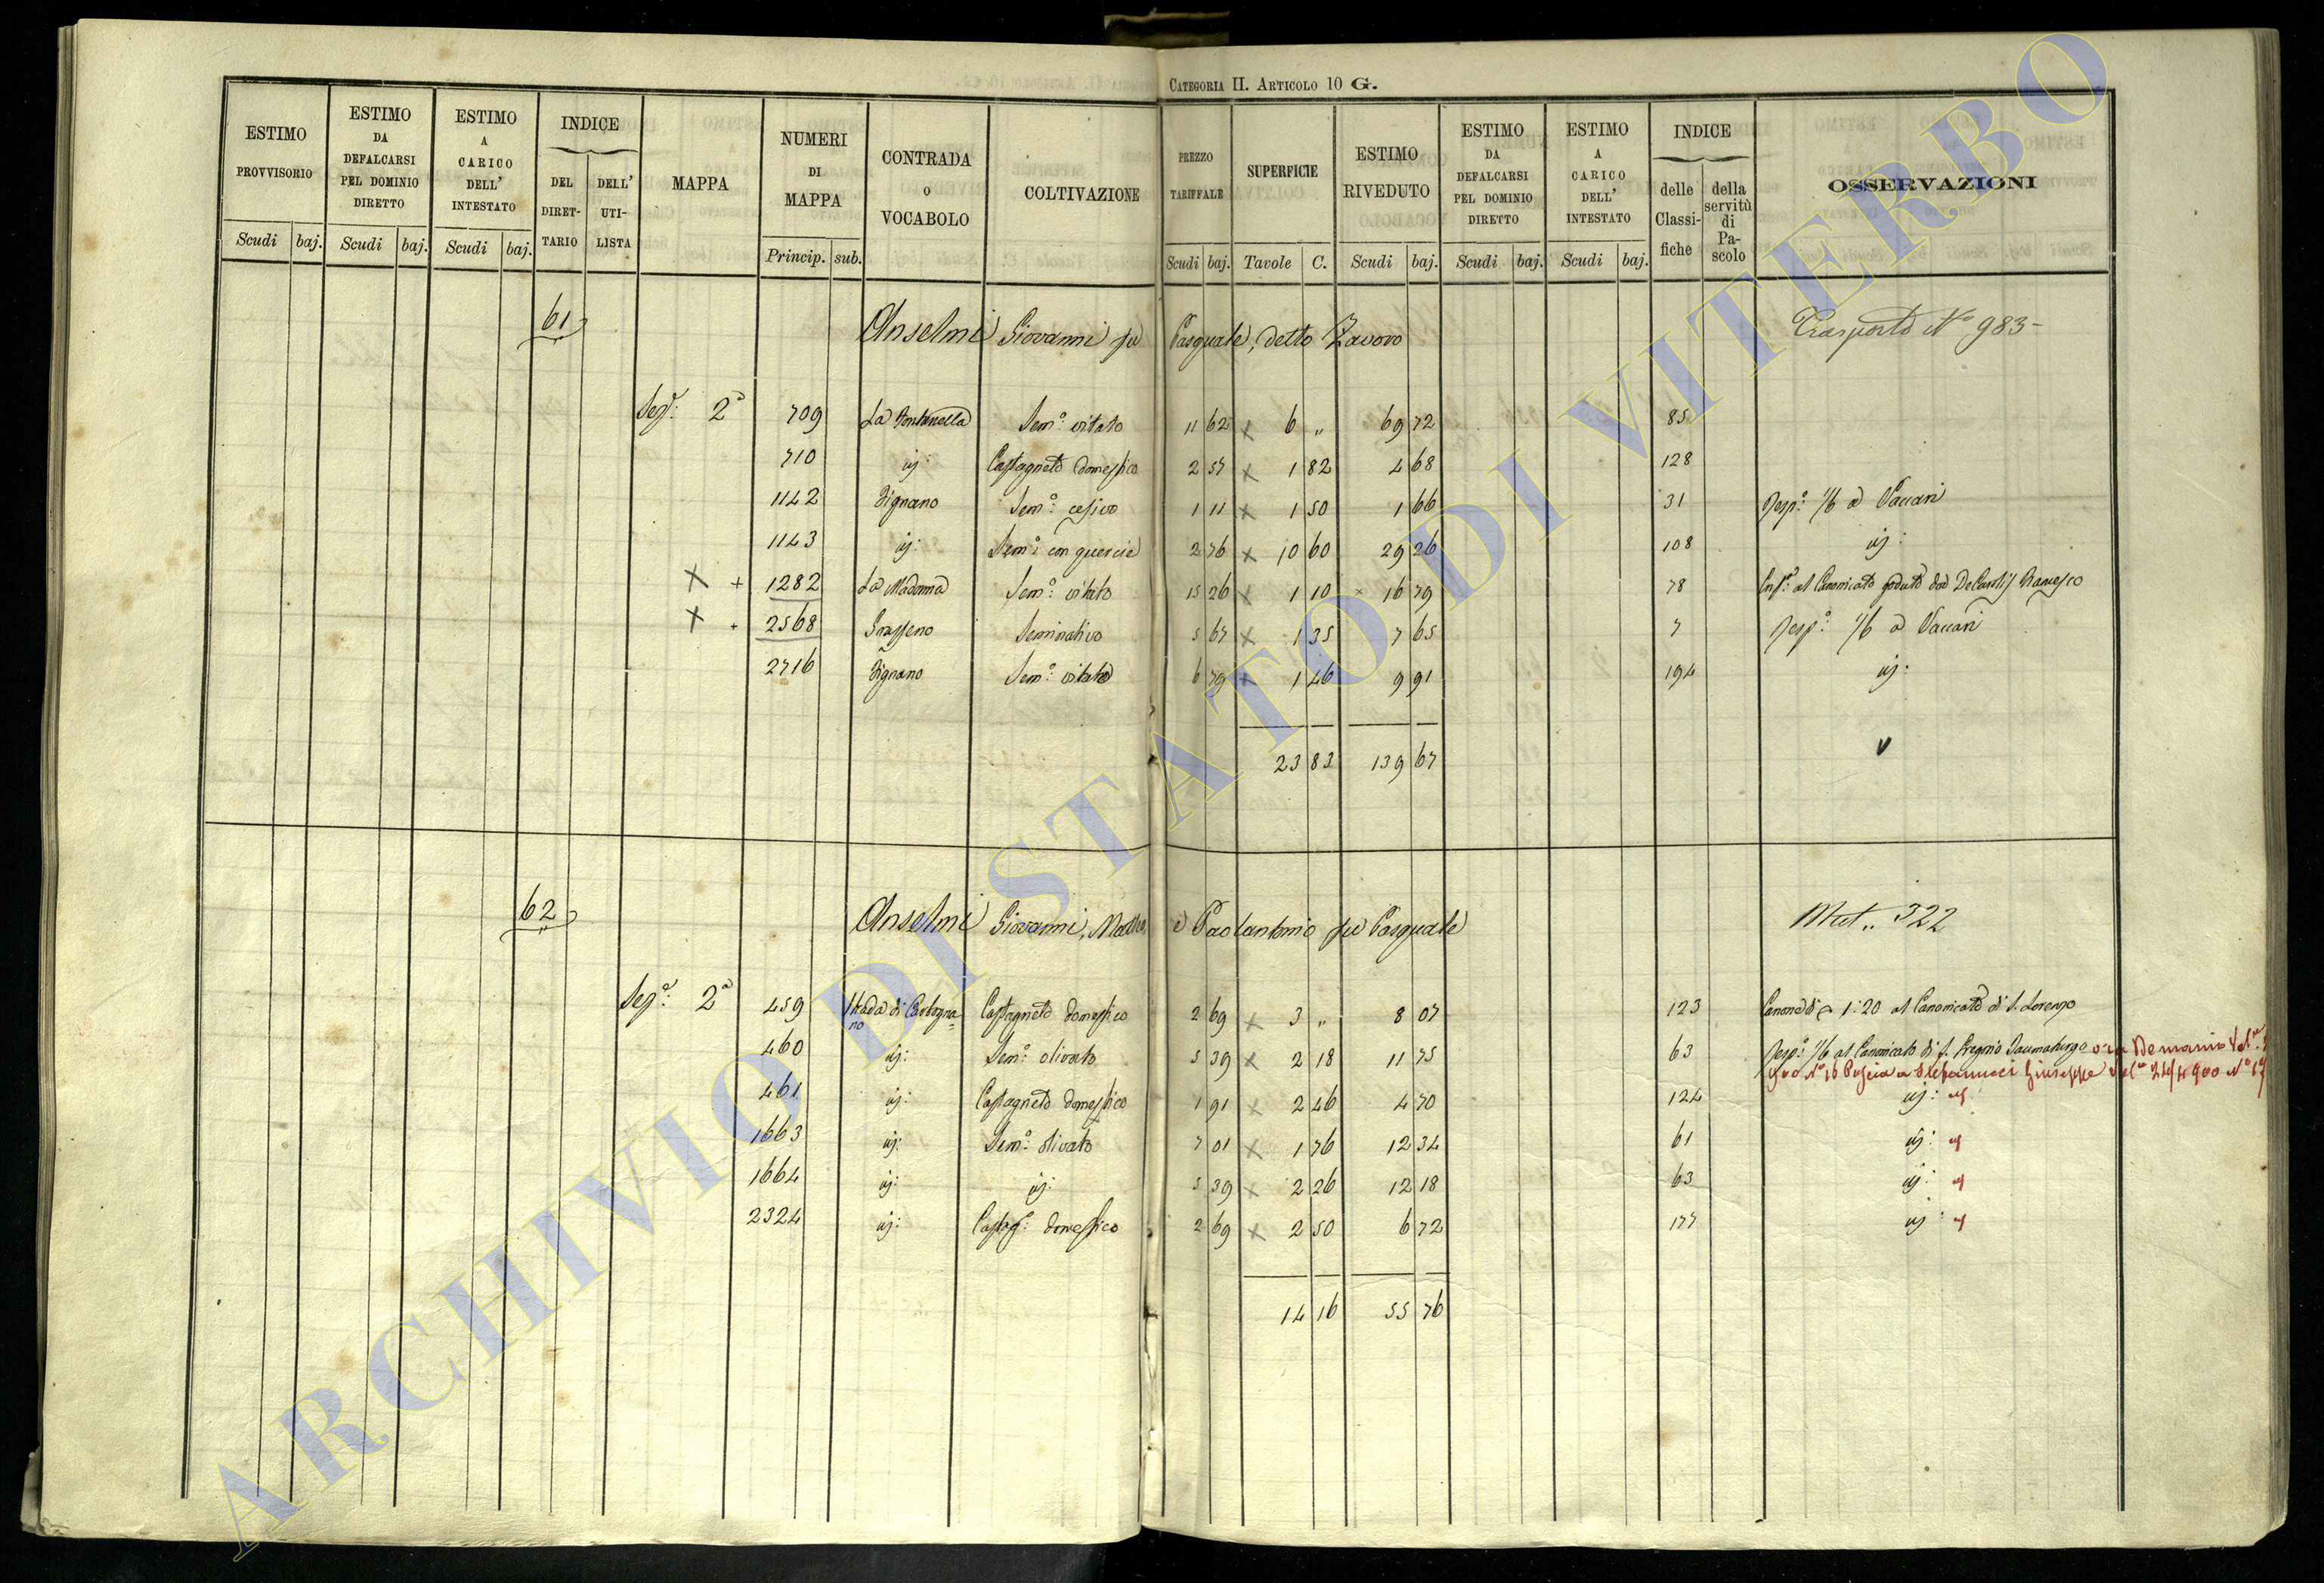 CATEGORIA II. ARTICOLO 10 G.
ESTIMO PROVVISORIO Scudi baj.
ESTIMO DA DEFALCARSI PEL DOMINIO DIRETTO Scudi baj.
ESTIMO A CARICO DELL' INTESTATO Scudi baj.
INDICE DEL DIRET-TARIO DELL' UTI-LISTA
MAPPA
NUMERI DI MAPPA Princip. sub.
CONTRADA O VOCABOLO
COLTIVAZIONE
PREZZO TARIFFALE Scudi baj.
SUPERFICIE Tavole C.
ESTIMO RIVEDUTO Scudi baj.
ESTIMO DA DEFALCARSI PEL DOMINIO DIRETTO Scudi baj.
ESTIMO A CARICO DELL' INTESTATO Scudi baj.
INDICE delle Classi-fiche della servitù di Pa-scolo
OSSERVAZIONI
61 Anselmi Giovanni fu Pasquale, detto Zavovo Trasporto N° 983
Sezᵉ: 2ª 709 La Fontanella Semº: vitato 11 62 x 6 „ 69 72 85
710 id: Castagneto domestico 2 57 x 1 82 4 68 128
1142 Fignano Semº: cesivo 1 11 x 1 50 1 66 31 Respº: 1/6 a Vaccari
1143 id: Semº: con quercie 2 76 x 10 60 29 26 108 id:
X + 1282 La Madonna Semº: vitato 15 26 x 1 10 16 79 78 Enfª: al Canonicato goduto da DeCarolis Francesco
X + 2568 Seminativo 5 67 x 1 35 7 65 7 Respº: 1/6 a Vaccari
2716 Fignano Semº: vitato 6 79 x 1 46 9 91 194 id:
23 83 139 67 v
62 Anselmi Giovanni, Matteo, e Paolantonio fu Pasquale Mut.. 322
Sezᵉ: 2ª 459 Strada di Carbogna=no Castagneto domestico 2 69 x 3 „ 8 07 123 Canone di 1:20 al Canonicato di S. Lorenzo
460 id: Semº: olivato 5 39 x 2 18 11 75 63 Respº: 1/6 al Canonicato di S. Gregorio Taumaturgo ora Demanio
N° 16 Poscia a Stefanucci Giuseppe
461 id: Castagneto domestico 1 91 x 2 46 4 70 124 id: id
1663 id: Semº: olivato 7 01 x 1 76 12 34 61 id: id
1664 id: id: 5 39 x 2 26 12 18 63 id: id
2324 id: Castagº: domestico 2 69 x 2 50 6 72 177 id: id
14 16 55 76
ARCHIVIO DI STATO DI VITERBO